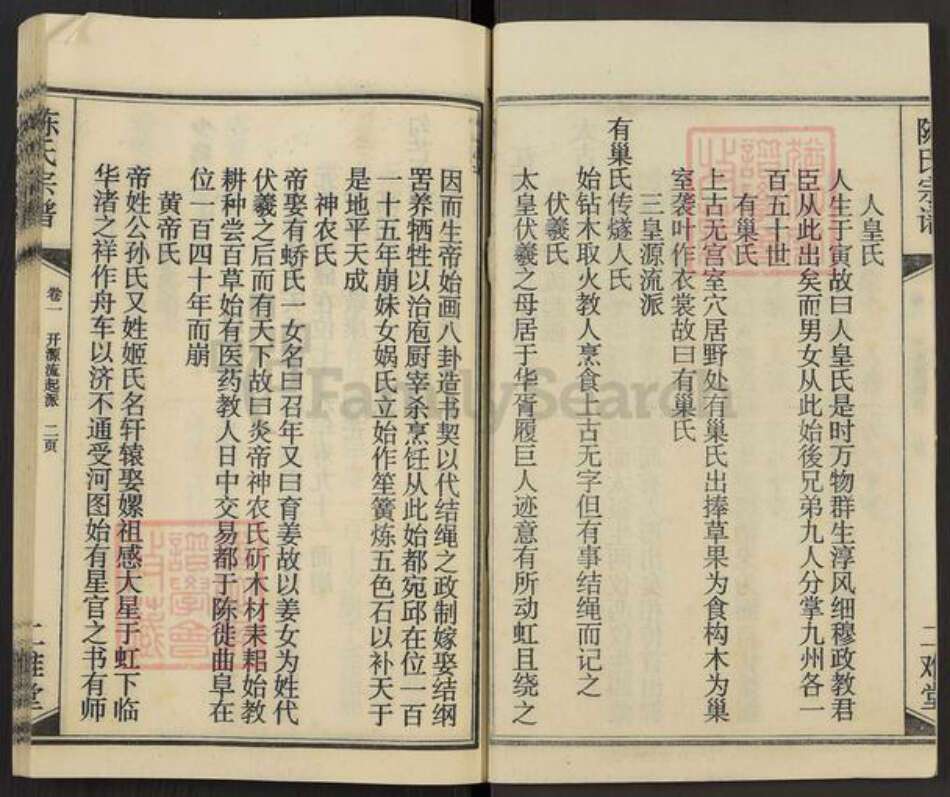 陈氏宗谱
二难堂
人皇氏
人生于寅故曰人皇氏是时万物群生淳风细穆政教君
臣从此出矣而男女从此始後兄弟九人分掌九州各一
百五十世
有巢氏
上古无宫室穴居野处有巢氏出捧草果为食构木为巢
室袭叶作衣裳故曰有巢氏
三皇源流派
有巢氏传燧人氏
始钻木取火教人烹食上古无字但有事结绳而记之
伏羲氏
太皇伏羲之母居于华胥履巨人迹意有所动虹且绕之
因而生帝始画八卦造书契以代结绳之政制嫁娶结纲
罟养牺牲以治庖厨宰杀烹饪从此始都宛邱在位一百
一十五年崩妹女娲氏立始作笙簧炼五色石以补天于
是地平天成
神农氏
帝娶有蟜氏一女名曰召年又曰育姜故以姜女为姓代
伏羲之后而有天下故曰炎帝神农氏斫木材耒耜始教
耕种尝百草始有医药教人日中交易都于陈徙曲阜在
位一百四十年而崩
黄帝氏
帝姓公孙氏又姓姬氏名轩辕娶嫘祖感大星于虹下临
华渚之祥作舟车以济不通受河图始有星官之书有师
陈氏宗谱
卷一 开源流起派 二页
二难堂
FamilySearch